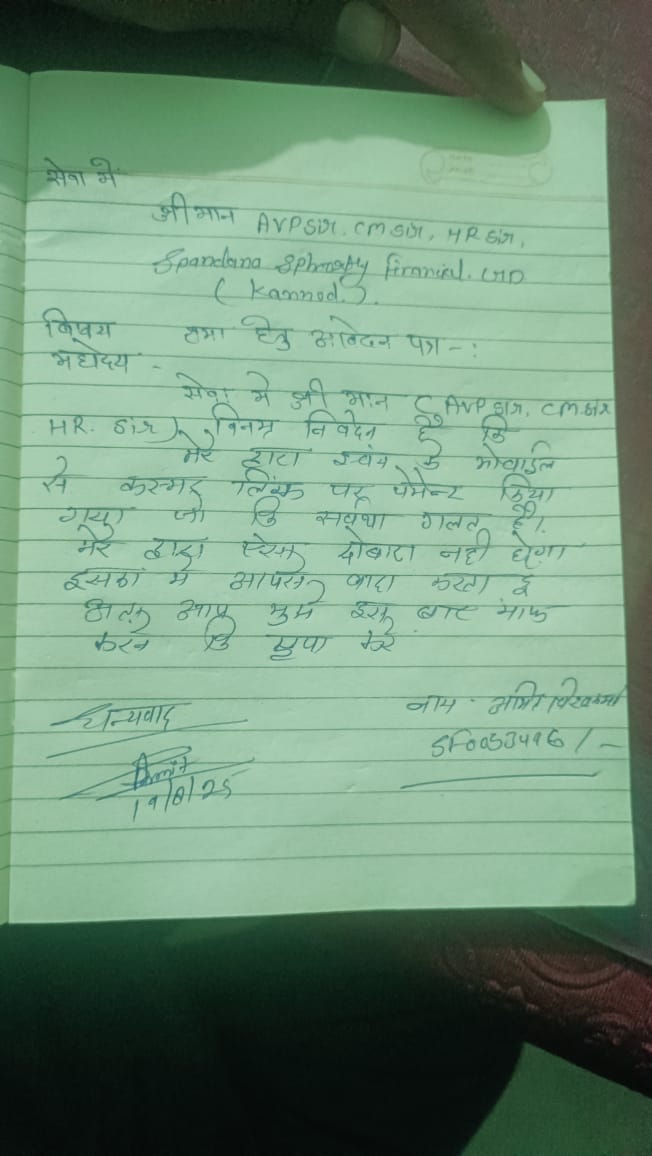 सेवा में
श्रीमान AVP Sir, CM Sir, HR Sir,
Spandana Sphoorty Financial. LTD
( Kannod. ).
विषय क्षमा हेतु आवेदन पत्र -:
महोदय -
सेवा में श्री मान ( AVP Sir, CM Sir
HR. Sir ), विनम्र निवेदन है कि
मेरे द्वारा स्वंय के मोबाईल
से कस्टमर लिंक पर पेमेन्ट किया
गया जो कि सर्वथा गलत है।
मेरे द्वारा दोबारा नही होगा
इसका में आपसे वादा करता हू
अतः आप मुझे इस बार माफ
करने कि कृपा करे
धन्यवाद
नाम - अमित विश्वकर्मा
SF0053496/-
Amit
19/8/25